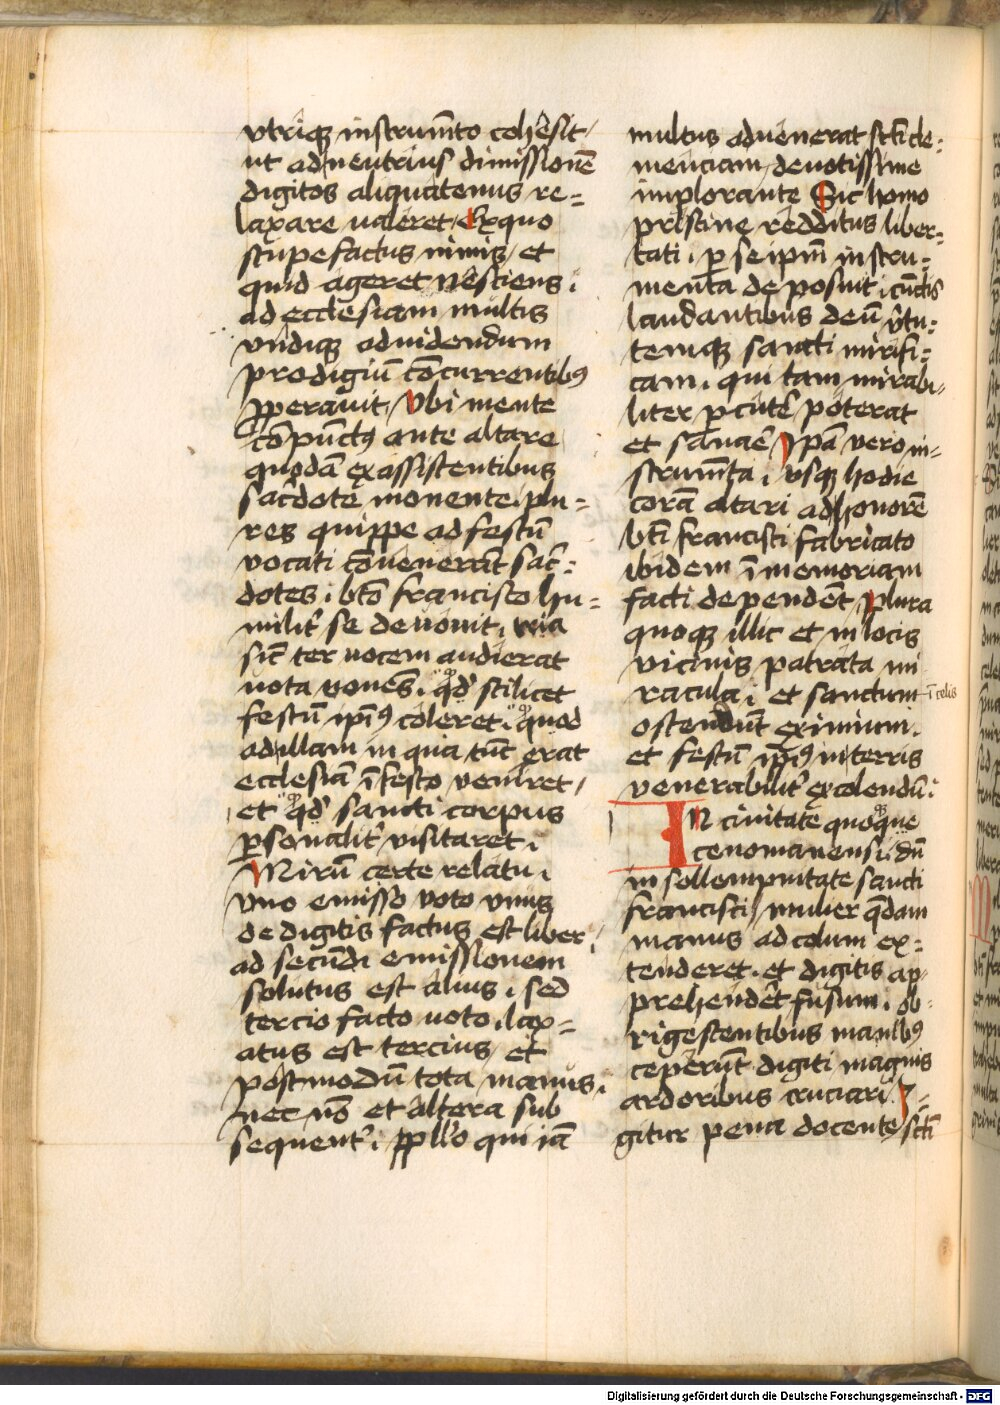 vtriq; instrum̄to cohesit /
ut ad neutrius dimissionē
digitos aliquatenus re=
laxare ualeret / Exquo
stupefactus nimis / et
quid ageret nesciens ·
ad ecclesiam multis
vndiq; advidendum
prodigiū cōcurrentibꝰ
ꝓperauit / Vbi mente
cōpunctꝰ ante altare
quodā ex assistentibus
sac̄dote monente · plu=
res quippe ad festū
vocati cōuenerāt sac̄=
dotes · bt̄o francisco hu=
milit̓ se deuouit · tria
sic̄ ter uocem audierat
uota vouēs · qd̓ scilicet
festū ip̄iꝰ coleret · quod
ad illam in qua tūc erat
ecclesiā ī festo veniret /
et qd̓ sancti corpus
ꝑsonalit̓ visitaret ·
Mirū certe relatu ·
vno emisso voto vnus
de digitis factus est liber ·
ad secūdi emissionem
solutus est alius · sed
tercio facto uoto · lax=
atus est tercius / et
postmodū tota manus ·
nec nō et altera sub
sequent̓ · ꝓ ll̓o qui iā
multus aduenerat sc̄ti cle=
menciam / deuotissime
implorante Sic homo
pristine redditus liber=
tati · ꝑ se ip̄m instru=
menta deposuit · cūctis
laudantibus deū v̓tu=
temq; sancti mirifi=
cam · qui tam mirabi=
liter ꝑcut̓e poterat
et sanaē Ip̄a vero in=
strum̄ta · vsq; hodie
corā altari ad honorē
bt̄i francisci fabricato
ibidem ī memoriam
facti dependēt / Plura
quoq; illic et in locis
vicinis patrata mi
racula · et sanctum ī celis
ostendūt eximium ·
et festū ip̄iꝰ in terris
venerabilit̓ excolendū ·
In ciuitate quoque
cenomanensi · dū
in sollempnitate sancti
francisci / mulier q̄dam
manus ad colum ex=
tenderet · et digitis ap=
prehenderēt fusum · ob=
rigescentibus manibꝰ
ceperūt digiti magnis
ardoribus cruciari · I=
gitur pena docente sc̄ti